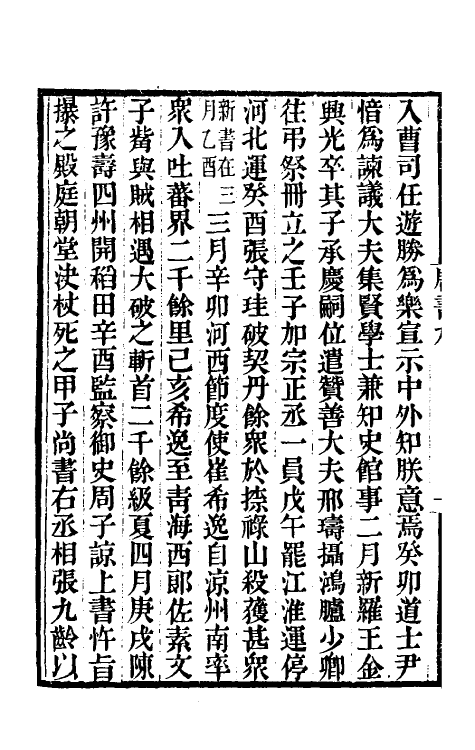 入曹司任遊勝爲樂宣示中外知朕意焉癸卯道士尹
愔爲諫議大夫集賢學士兼知史館事二月新羅王金
興光卒其子承慶嗣位遣贊善大夫邢璹攝鴻臚少卿
往弔祭冊立之壬子加宗正丞一員戊午罷江淮運停
河北運癸酉張守珪破契丹餘衆於捺祿山殺獲甚衆
新書在三月乙酉三月辛卯河西節度使崔希逸自涼州南率
衆入吐蕃界二千餘里己亥希逸至靑海西郞佐素文
子觜與賊相遇大破之斬首二千餘級夏四月庚戌陳
許豫壽四州開稻田辛酉監察御史周子諒上書忤旨
㩧之殿庭朝堂決杖死之甲子尚書右丞相張九齡以